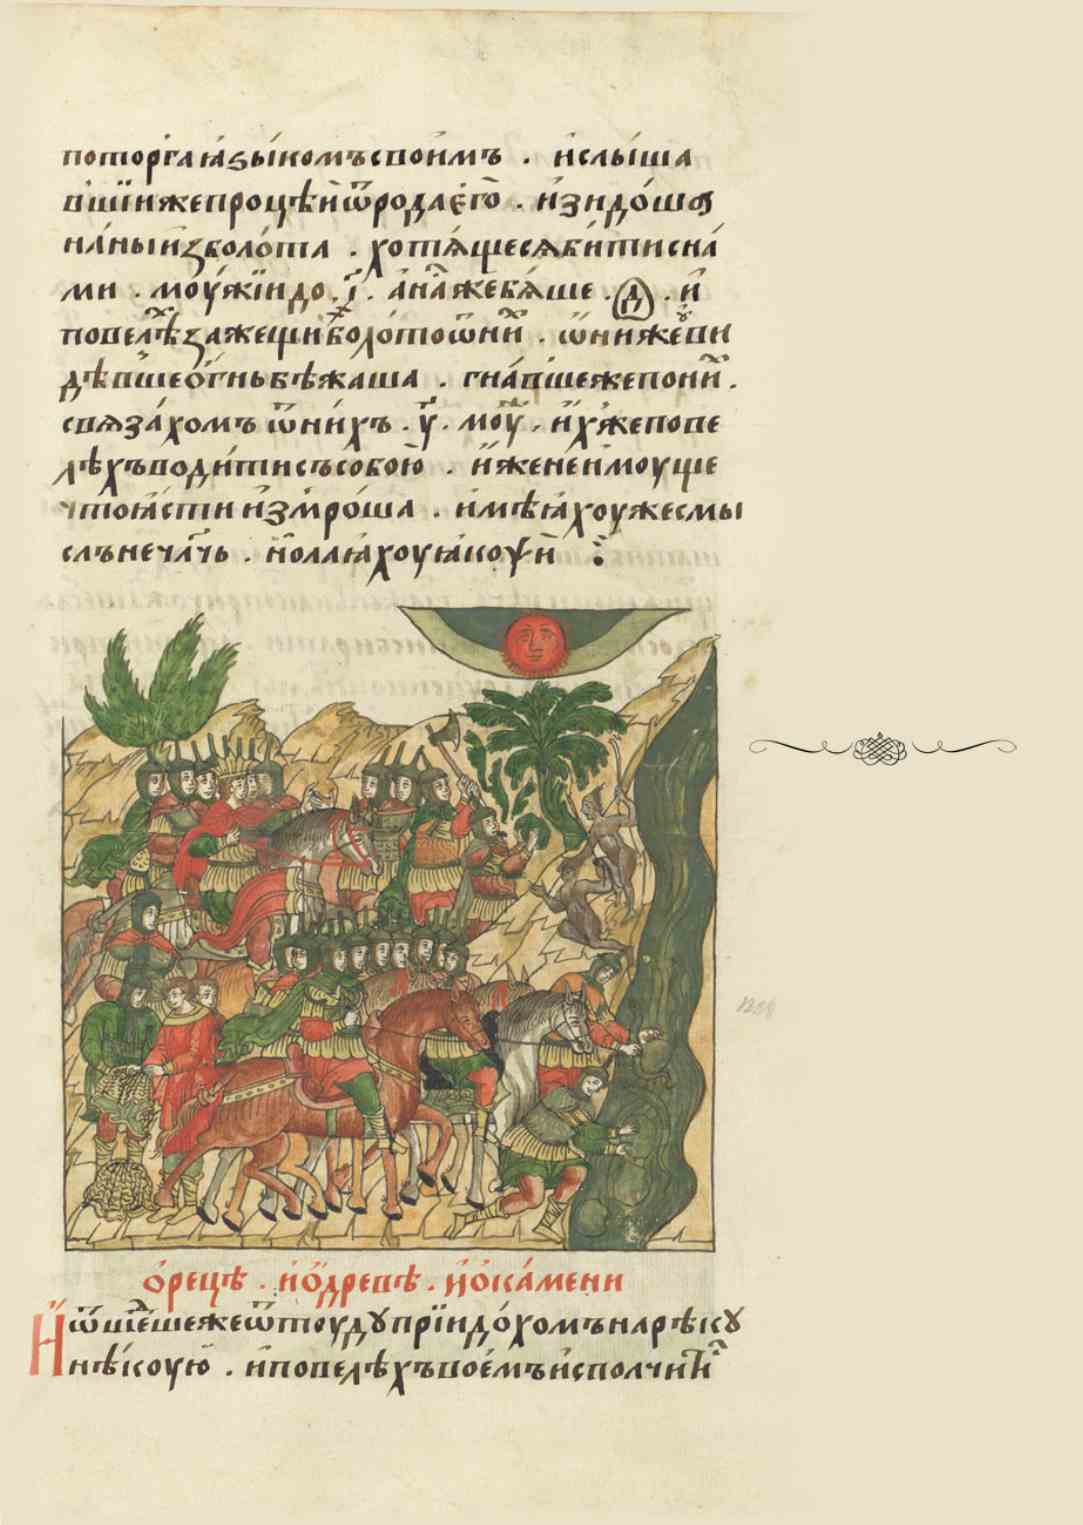 поторгаꙗзы́комъсвои́мъ . и҆слы́ша
вшїиж̾епроцѣи҆ѿродаегѡ̀ . и҆зидо́шаѡ
на́ныизболо́та . хотѧ́щесѧби́тисна́
ми . моу́жїидо . і҃ . ана́сжебѧ́ше . д . и
повелѣ́хзажещиболо́тоѿни́х . ѡ҆ниж̾еви
дѣвшео҆́гньбѣжаша . гна́вшежепони́х .
свѧза́хомъѿни́хъ . у҃ . моу́ж . и҆́хжепове
лѣ́хъводи́тисъсобою̀ . и҆́женеимоуще
чтоꙗ́стии҆змро́ша . имѣꙗ́хоужесмы
слънечл҃чь . но́лаꙗхоуꙗ́коѱѝ ⁘
о҆рецѣ . и҆о҆древѣ . и҆о҆ка́мени
И҆ѿше́дшежеѿтоудꙋпрїидо́хомънарѣкꙋ
нѣ́коую̀ . и҆повелѣ́хъвое́мъи҆сполчи́ти